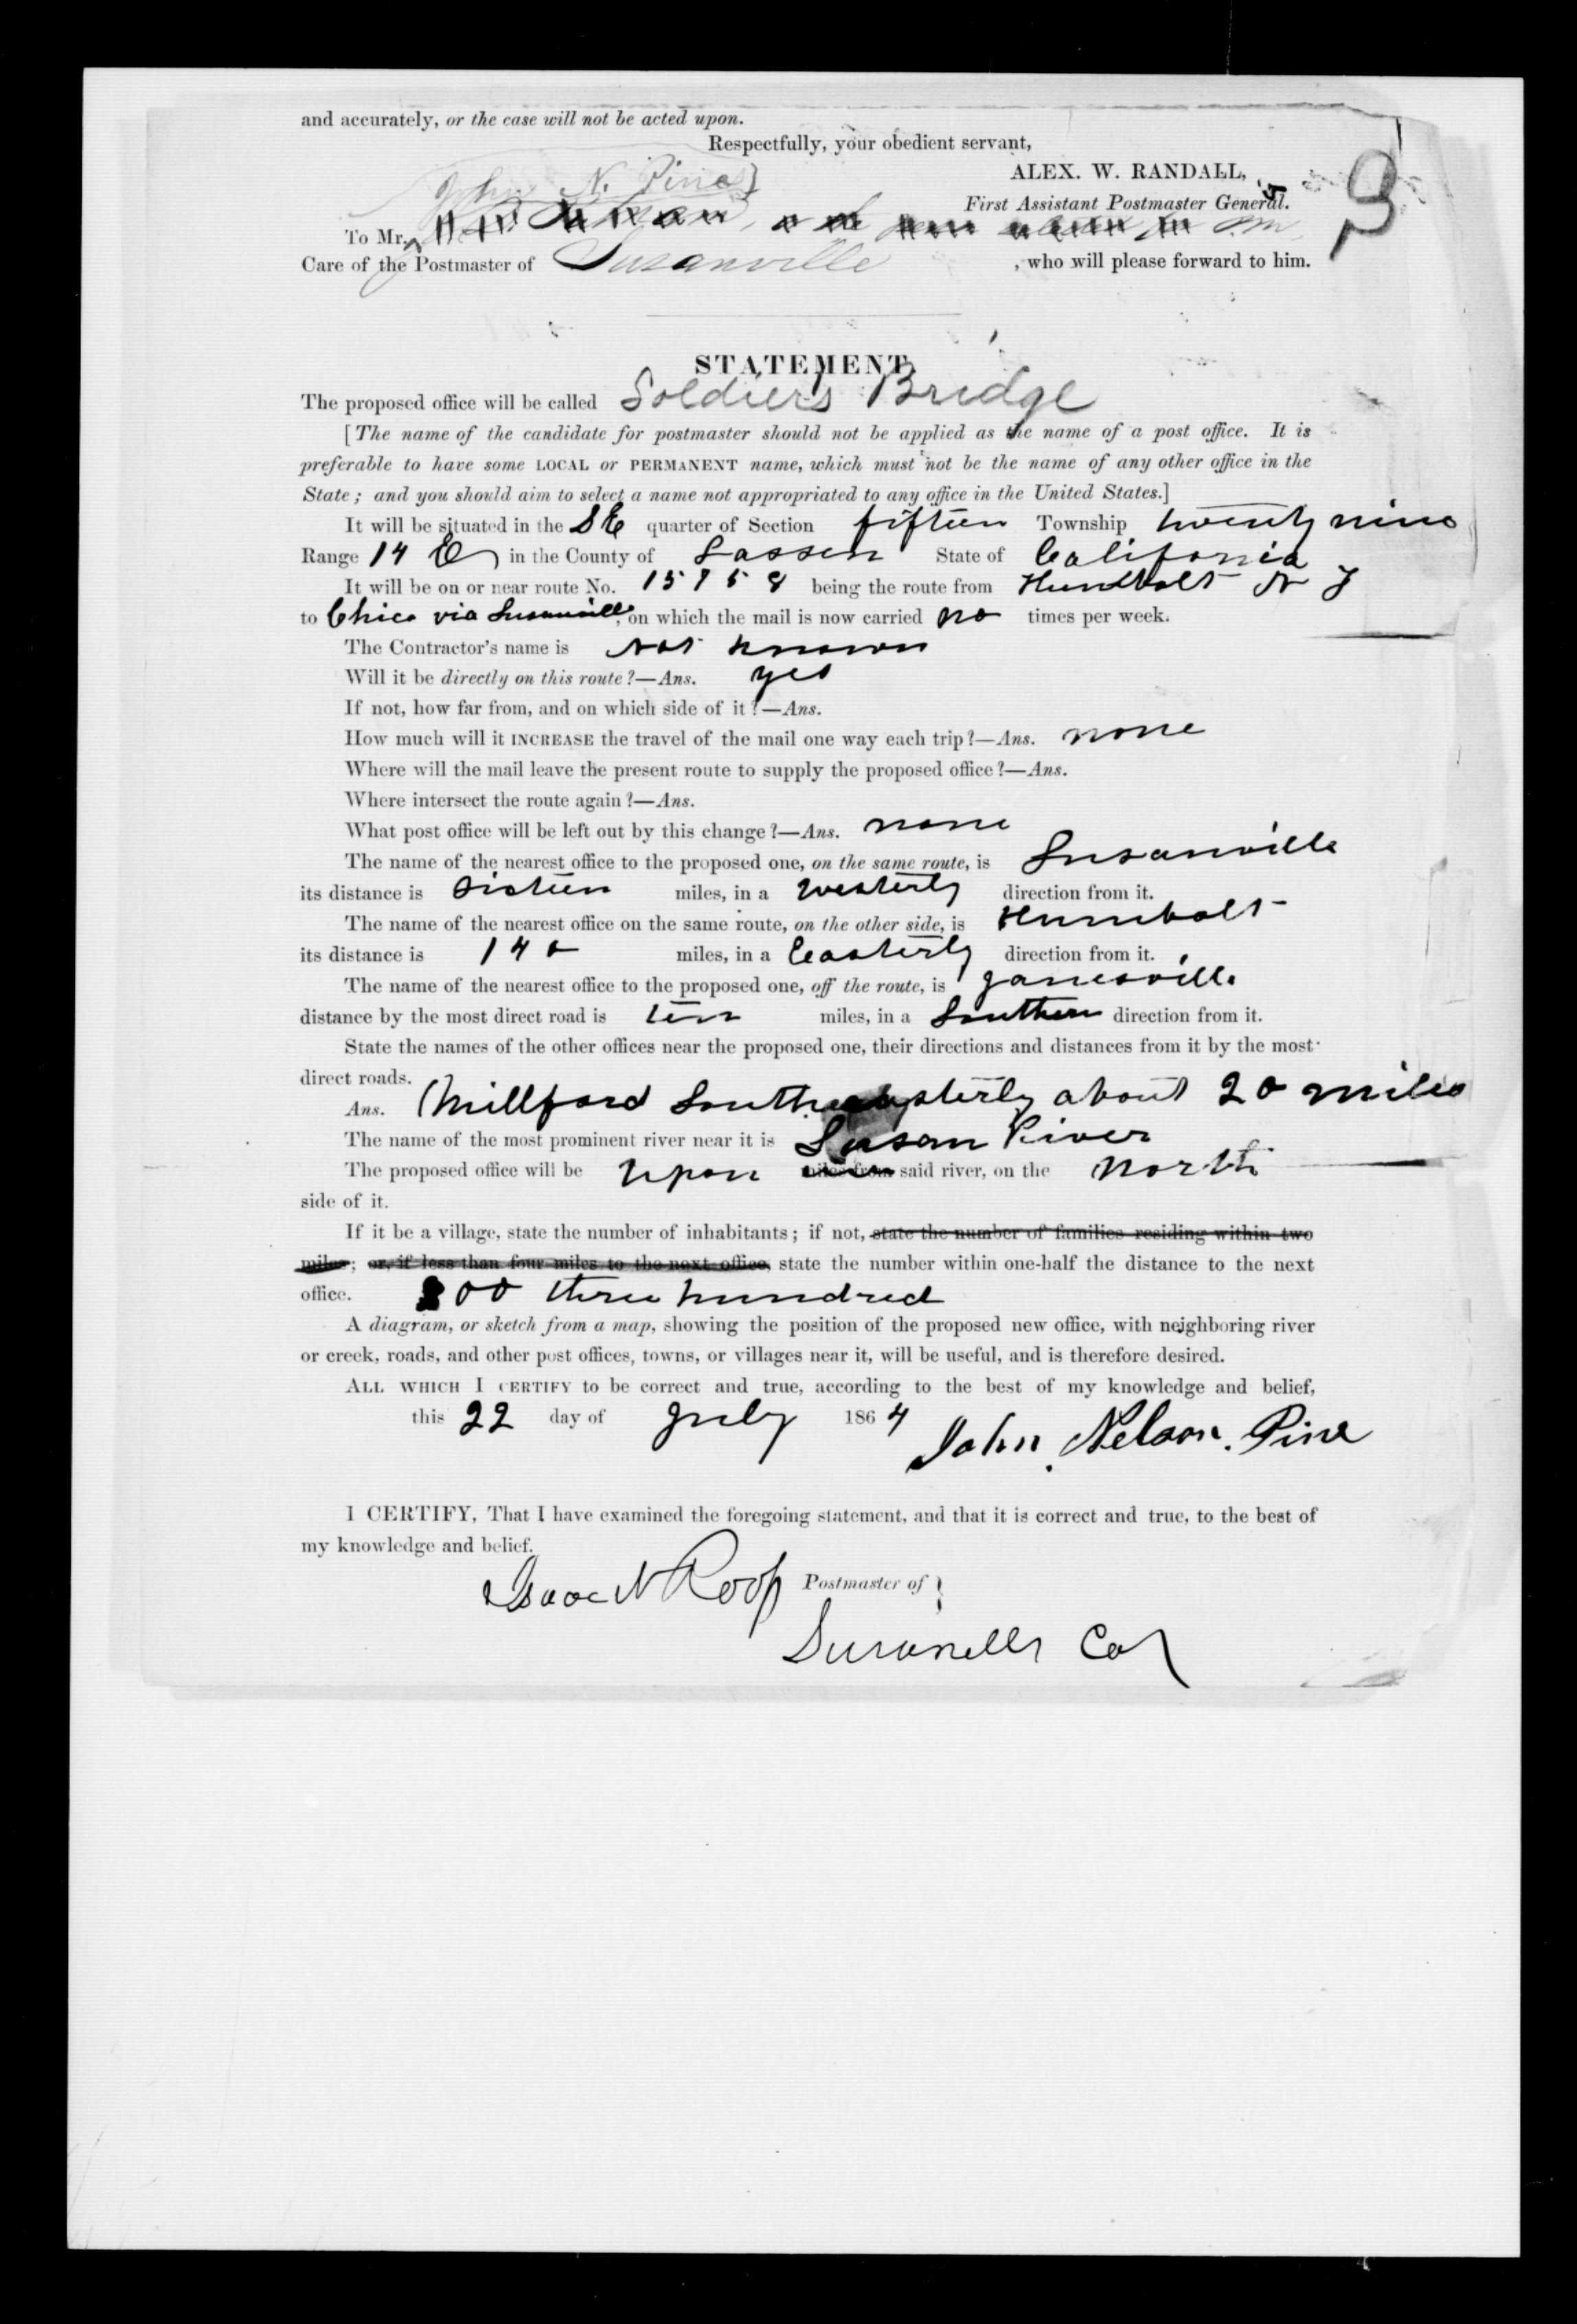 and accurately, or the case will not be acted upon.
Respectfully, your obedient servant,
ALEX. W. RANDALL,
First Assistant Postmaster General.
John N. Pine
To Mr.
Care of the Postmaster of Susanville , who will please forward to him.
STATEMENT.
The proposed office will be called Soldiers Bridge
[The name of the candidate for postmaster should not be applied as the name of a post office. It is
preferable to have some LOCAL or PERMANENT name, which must not be the name of any other office in the
State; and you should aim to select a name not appropriated to any office in the United States.]
It will be situated in the SE quarter of Section fifteen Township twenty nine
Range 14 E in the County of Lassen State of California
It will be on or near route No. 15758 being the route from Humbolt N T
to Chico via Susanville, on which the mail is now carried no times per week.
The Contractor's name is not known
Will it be directly on this route?—Ans. yes
If not, how far from, and on which side of it?—Ans.
How much will it INCREASE the travel of the mail one way each trip?—Ans. none
Where will the mail leave the present route to supply the proposed office?—Ans.
Where intersect the route again?—Ans.
What post office will be left out by this change?—Ans. none
The name of the nearest office to the proposed one, on the same route, is Susanville
its distance is Sixteen miles, in a westerly direction from it.
The name of the nearest office on the same route, on the other side, is Humbolt
its distance is 140 miles, in a Easterly direction from it.
The name of the nearest office to the proposed one, off the route, is Janesville
distance by the most direct road is ten miles, in a Southern direction from it.
State the names of the other offices near the proposed one, their directions and distances from it by the most
direct roads.
Ans. Millford Southeasterly about 20 miles
The name of the most prominent river near it is Susan River
The proposed office will be upon miles from said river, on the north
side of it.
If it be a village, state the number of inhabitants; if not, state the number of families residing within two
miles; or, if less than four miles to the next office, state the number within one-half the distance to the next
office. 300 three hundred
A diagram, or sketch from a map, showing the position of the proposed new office, with neighboring river
or creek, roads, and other post offices, towns, or villages near it, will be useful, and is therefore desired.
ALL WHICH I CERTIFY to be correct and true, according to the best of my knowledge and belief,
this 22 day of July 1864
John Nelson Pine
I CERTIFY, That I have examined the foregoing statement, and that it is correct and true, to the best of
my knowledge and belief.
Isaac N Roop Postmaster of
Susanville Cal